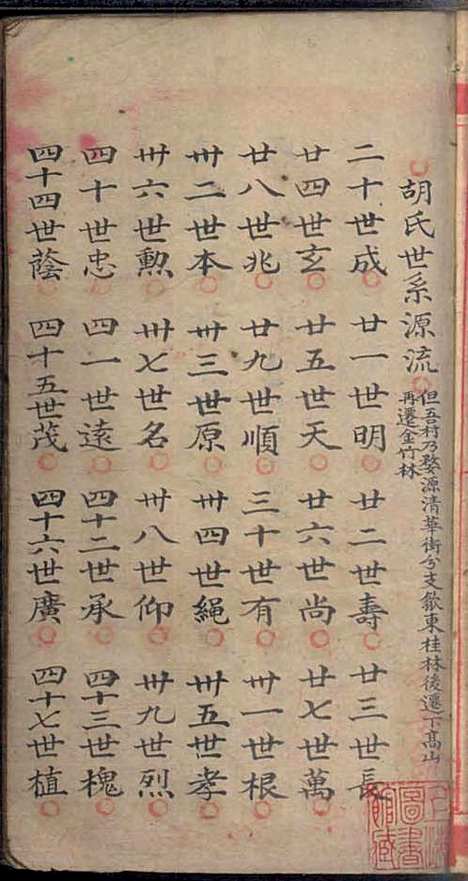 胡氏世系源流
但吾村乃婺源清華街分支歙東桂林後遷下高山
再遷金竹林
二十世成 廿一世明 廿二世壽 廿三世長
廿四世玄 廿五世天 廿六世尚 廿七世萬
廿八世兆 廿九世順 三十世有 卅一世根
卅二世本 卅三世原 卅四世繩 卅五世孝
卅六世勲 卅七世名 卅八世仰 卅九世烈
四十世忠 四一世遠 四十二世承 四十三世槐
四十四世蔭 四十五世茂 四十六世廣 四十七世植
圖書
館藏